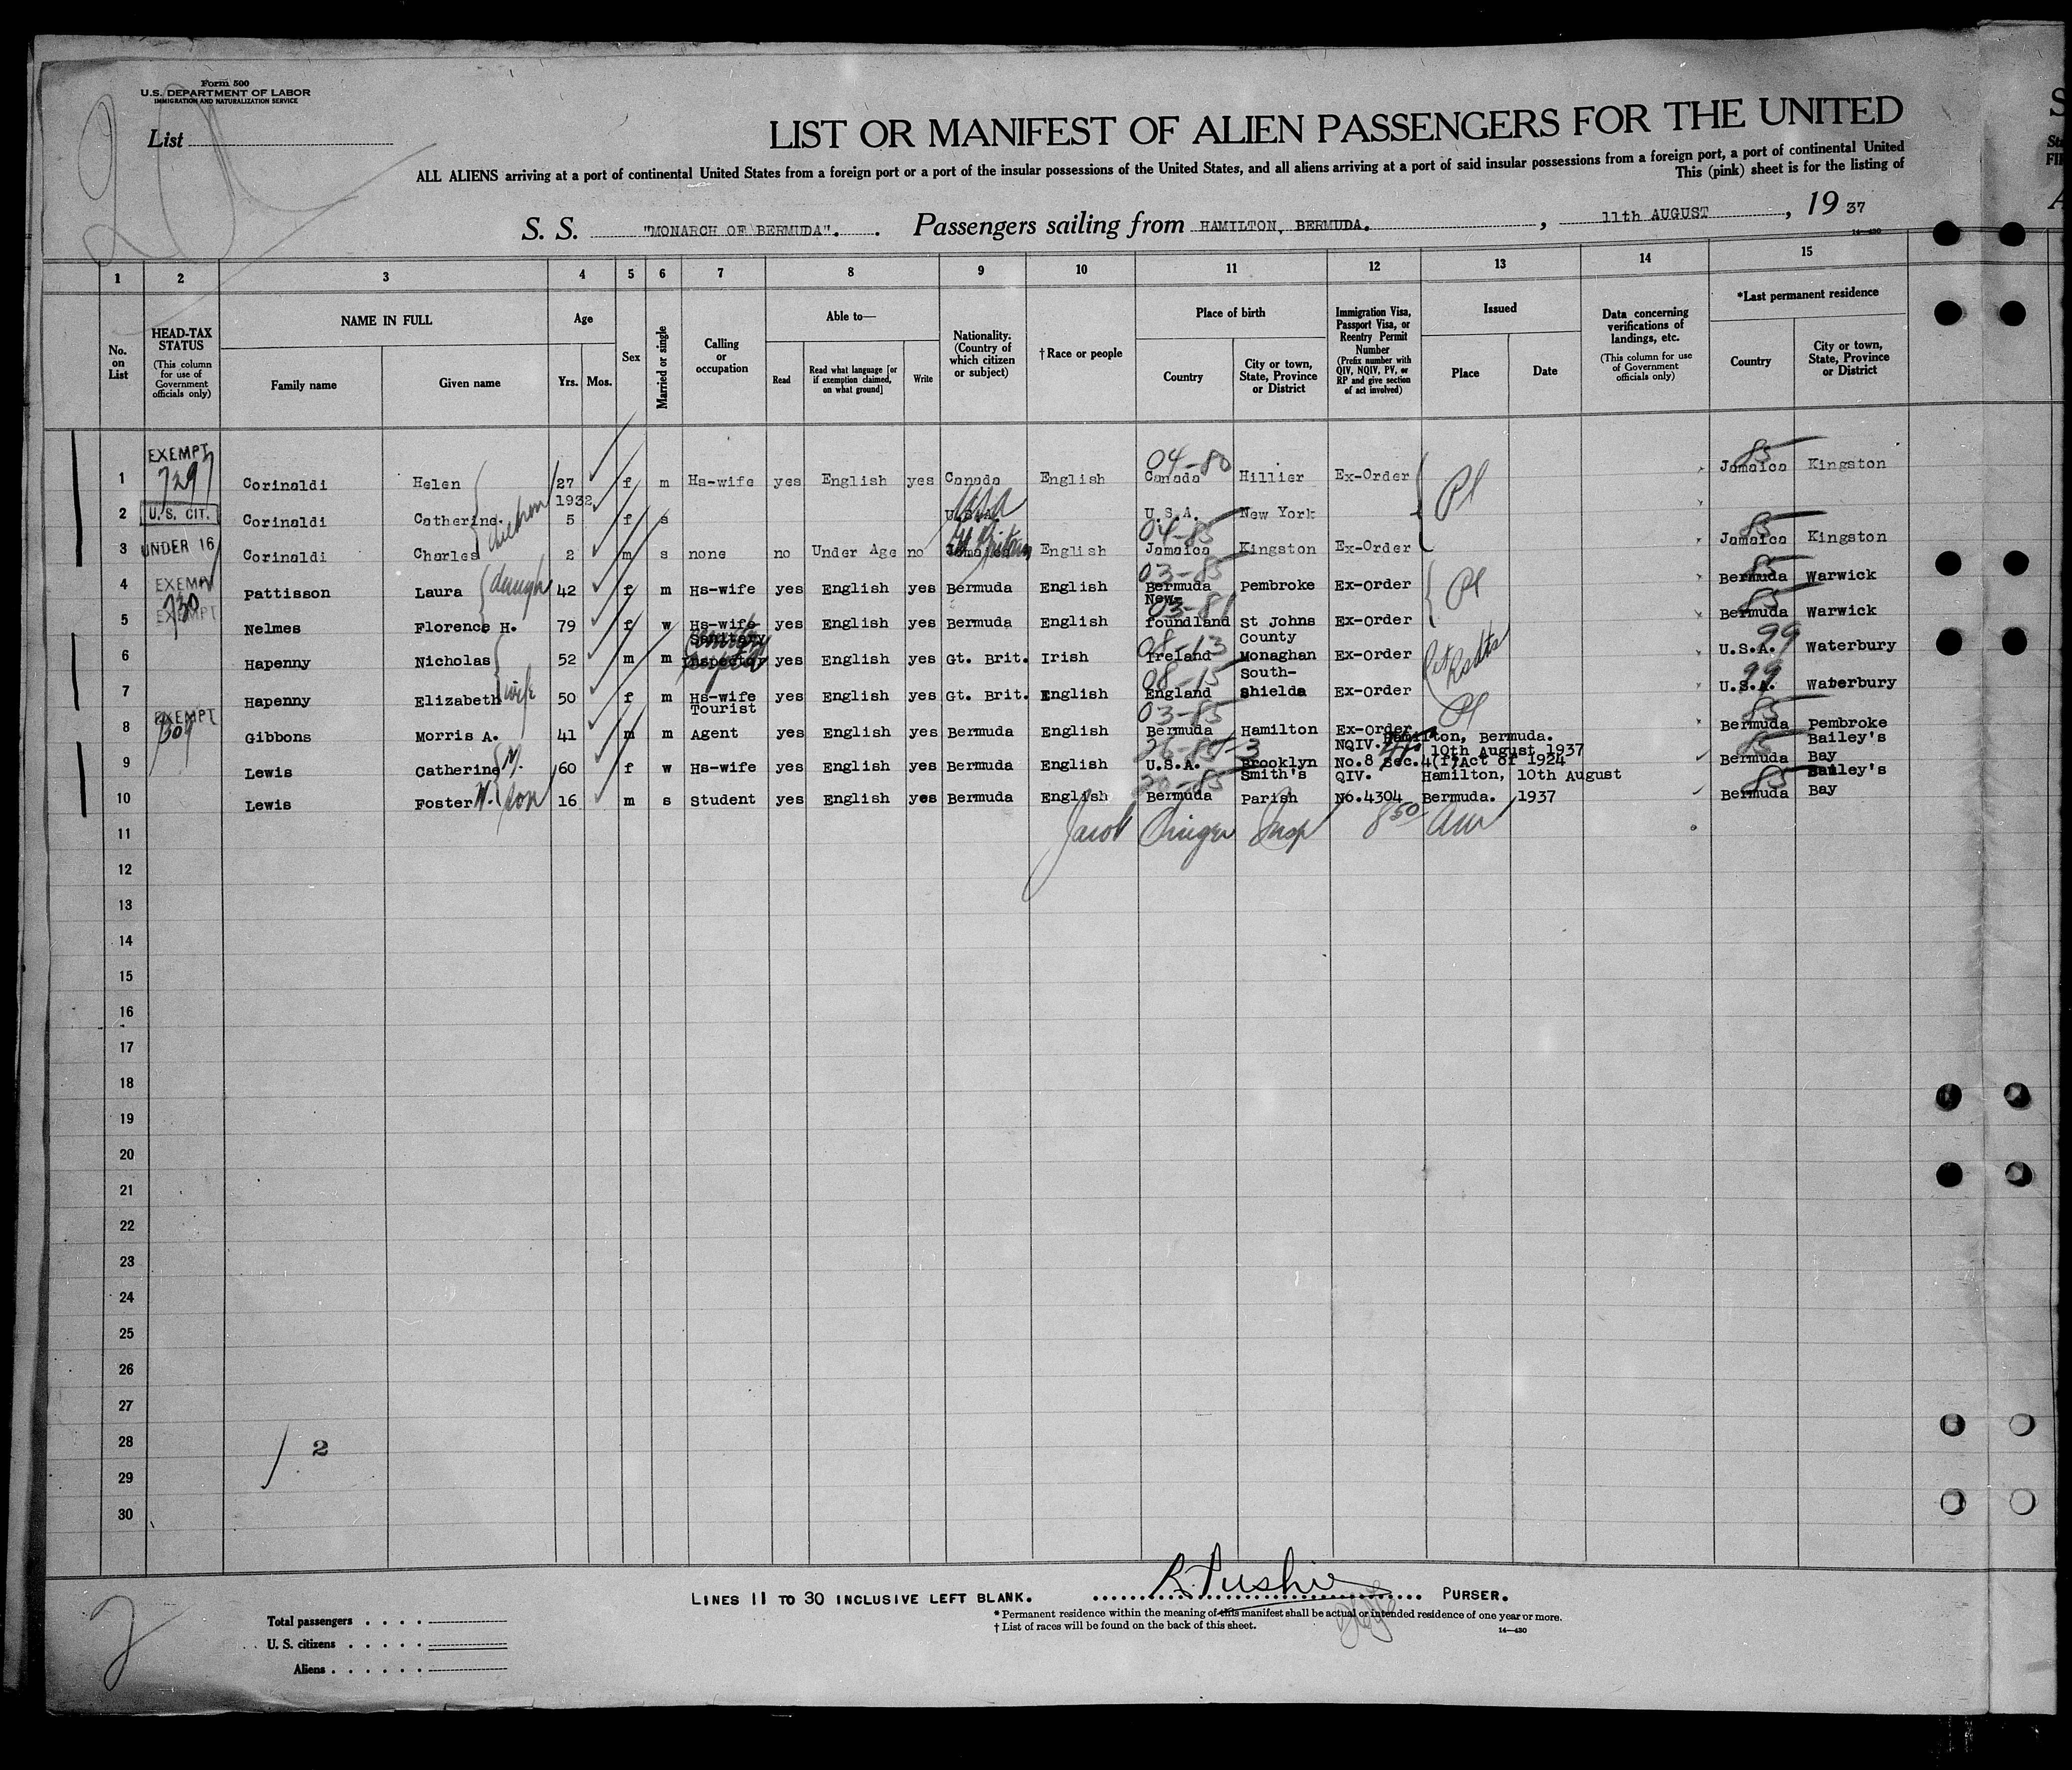 Form 500
U.S. DEPARTMENT OF LABOR
IMMIGRATION AND NATURALIZATION SERVICE
List
LIST OR MANIFEST OF ALIEN PASSENGERS FOR THE UNITED
ALL ALIENS arriving at a port of continental United States from a foreign port or a port of the insular possessions of the United States, and all aliens arriving at a port of said insular possessions from a foreign port, a port of continental United
This (pink) sheet is for the listing of
S. S. "MONARCH OF BERMUDA". Passengers sailing from HAMILTON, BERMUDA. , 11th AUGUST , 19 37
14—430
1 2 3 4 5 6 7 8 9 10 11 12 13 14 15
No. on List
HEAD-TAX STATUS
(This column for use of Government officials only)
NAME IN FULL
Family name Given name
Age
Yrs. Mos.
Sex
Married or single
Calling or occupation
Able to—
Read
Read what language [or if exemption claimed, on what ground]
Write
Nationality. (Country of which citizen or subject)
†Race or people
Place of birth
Country
City or town, State, Province or District
Immigration Visa, Passport Visa, or Reentry Permit Number
(Prefix number with QIV, NQIV, PV, or RP and give section of act involved)
Issued
Place Date
Data concerning verifications of landings, etc.
(This column for use of Government officials only)
*Last permanent residence
Country
City or town, State, Province or District
EXEMPT 04-80 85
1 729 Corinaldi Helen 27 f m Hs-wife yes English yes Canada English Canada Hillier Ex-Order Jamaica Kingston
1932
2 U. S. CIT. Corinaldi Catherine. children 5 f s U.S.A. U.S.A. New York
04-85 85
3 UNDER 16 Corinaldi Charles 2 m s none no Under Age no Jamaica Gt Britain English Jamaica Kingston Ex-Order Jamaica Kingston
03-85 85
4 EXEMPT Pattisson Laura daugh 42 f m Hs-wife yes English yes Bermuda English Bermuda Pembroke Ex-Order Bermuda Warwick
730 New- 03-81 85
5 EXEMPT Nelmes Florence H. 79 f w Hs-wife yes English yes Bermuda English foundland St Johns Ex-Order Bermuda Warwick
Sanitary 08-13 County 99
6 Hapenny Nicholas 52 m m Inspector yes English yes Gt. Brit. Irish Ireland Monaghan Ex-Order U.S.A. Waterbury
08-15 South- 99
7 Hapenny Elizabeth wife 50 f m Hs-wife yes English yes Gt. Brit. English England Shields Ex-Order U.S.A. Waterbury
EXEMPT Tourist 03-85 85
8 309 Gibbons Morris A. 41 m m Agent yes English yes Bermuda English Bermuda Hamilton Ex-Order Bermuda Pembroke
NQIV. Hamilton, Bermuda. 10th August 1937 85 Bailey's
9 Lewis Catherine M. 60 f w Hs-wife yes English yes Bermuda English U.S.A. Brooklyn No.8 Sec.4(f)Act of 1924 Bermuda Bay
Smith's QIV. Hamilton, 10th August 85 Bailey's
10 Lewis Foster W. son 16 m s Student yes English yes Bermuda English Bermuda Parish No.4304 Bermuda. 1937 Bermuda Bay
11 Jacob Insp
12
13
14
15
16
17
18
19
20
21
22
23
24
25
26
27
28 2
29
30
LINES 11 TO 30 INCLUSIVE LEFT BLANK. PURSER.
Total passengers
U. S. citizens
Aliens
* Permanent residence within the meaning of this manifest shall be actual or intended residence of one year or more.
† List of races will be found on the back of this sheet.
14—430
2